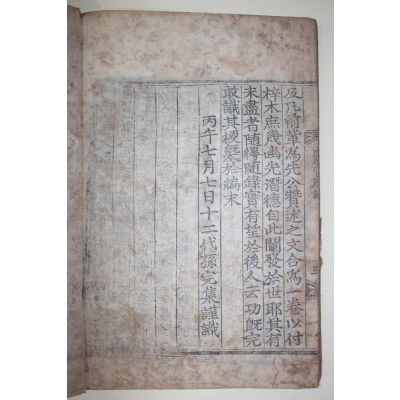 及凡前輩爲先公贊述之文合爲一卷以付
梓木庶幾幽光潛德自此闡發於世耶其有
未盡者隨得隨錄實有望於後人云功旣完
敢識其槩於編末
丙午七月七日十二代孫完集謹識